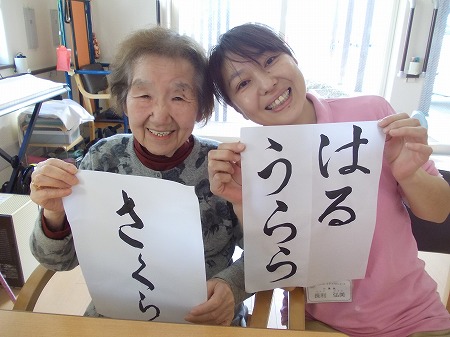 さくら
はる
うらら